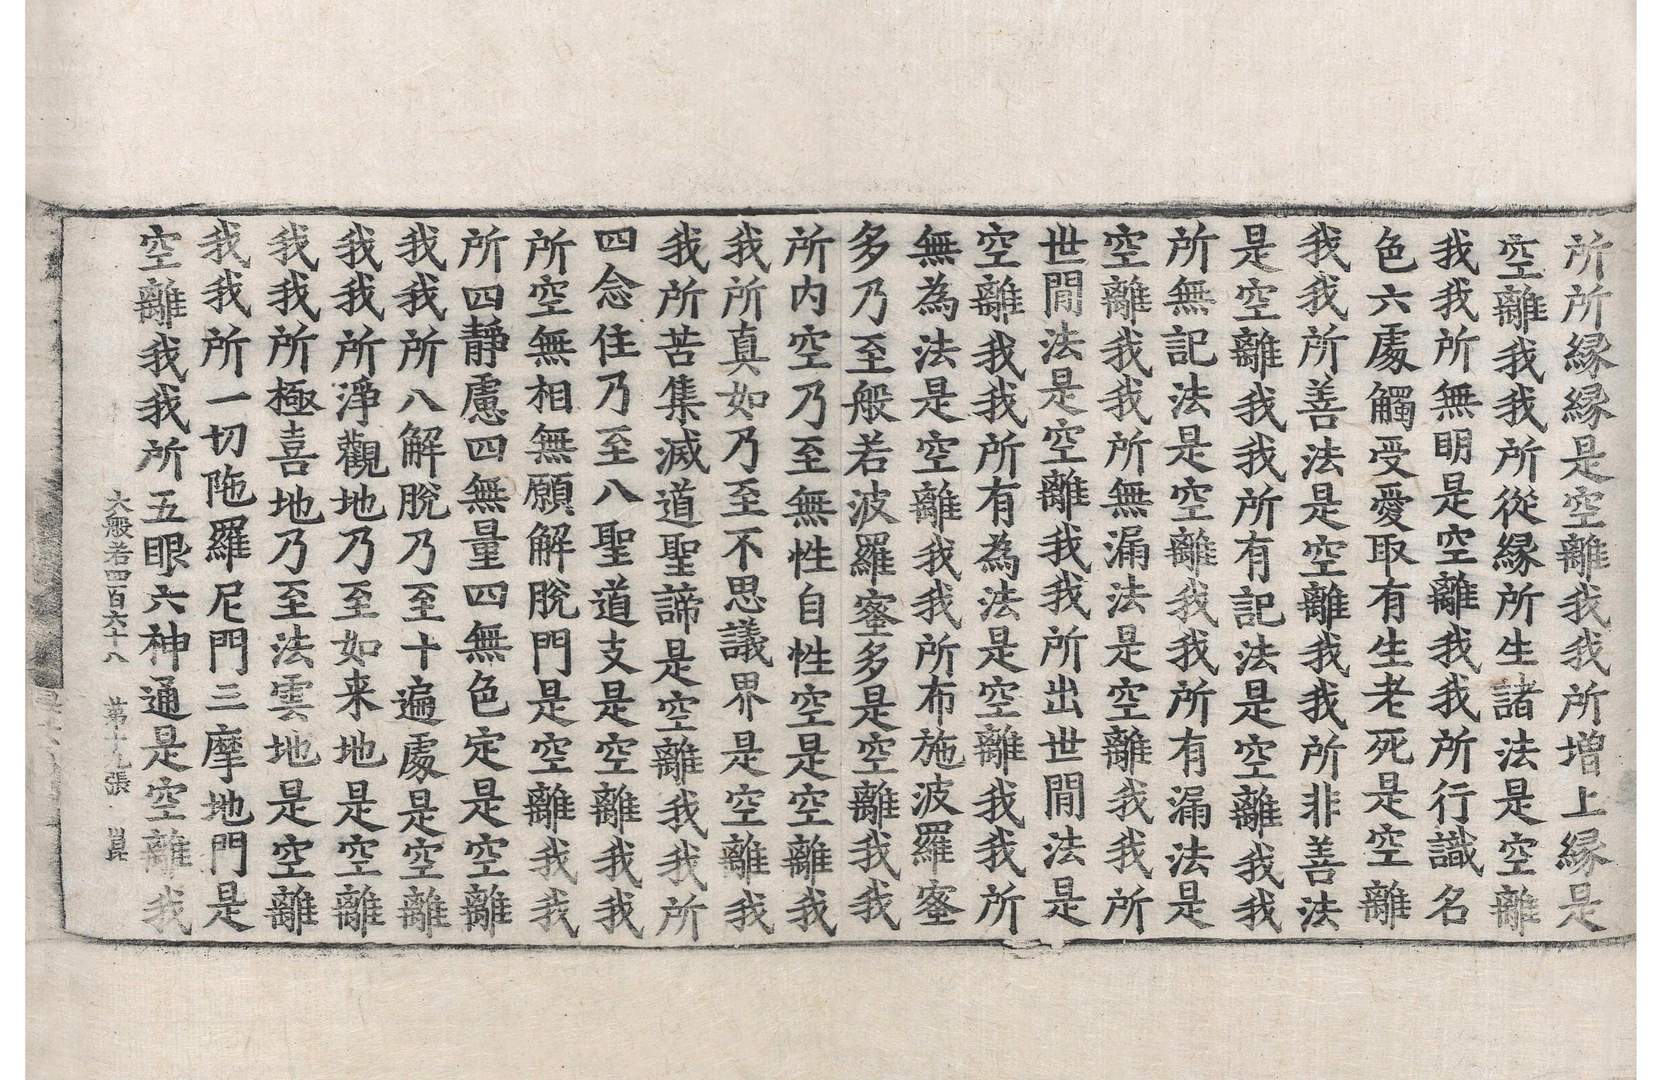 所所縁縁是空離我我所増上縁是
空離我我所從縁所生諸法是空離
我我所無明是空離我我所行識名
色六處觸受愛取有生老死是空離
我我所善法是空離我我所非善法
是空離我我所有記法是空離我我
所無記法是空離我我所有漏法是
空離我我所無漏法是空離我我所
世間法是空離我我所出世間法是
空離我我所有為法是空離我我所
無為法是空離我我所布施波羅蜜
多乃至般若波羅蜜多是空離我我
所内空乃至無性自性空是空離我
我所真如乃至不思議界是空離我
我所苦集滅道聖諦是空離我我所
四念住乃至八聖道支是空離我我
所空無相無願解脫門是空離我我
所四靜慮四無量四無色定是空離
我我所八解脫乃至十遍處是空離
我我所淨觀地乃至如来地是空離
我我所極喜地乃至法雲地是空離
我我所一切陁羅尼門三摩地門是
空離我我所五眼六神通是空離我
大般若四百六十八 苐十九張